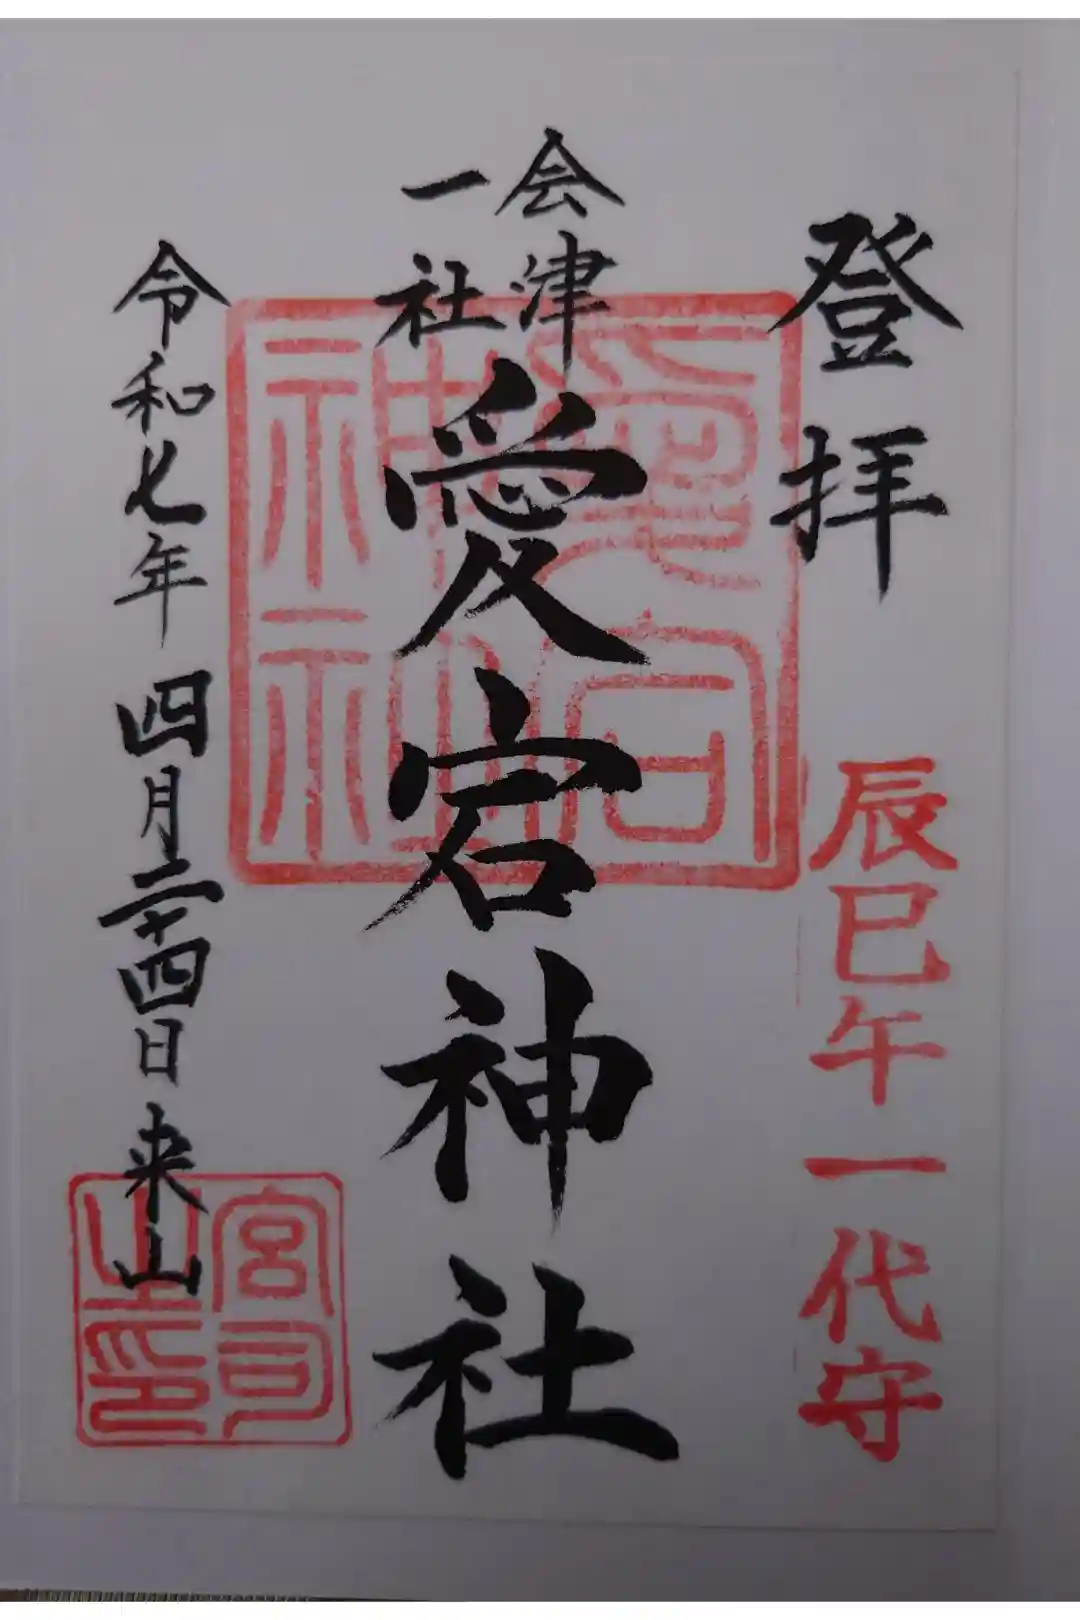 登拝
辰巳午一代守
会津
一社
愛宕神社
愛宕
神社
令和七年四月二十四日来山
宮司
之印